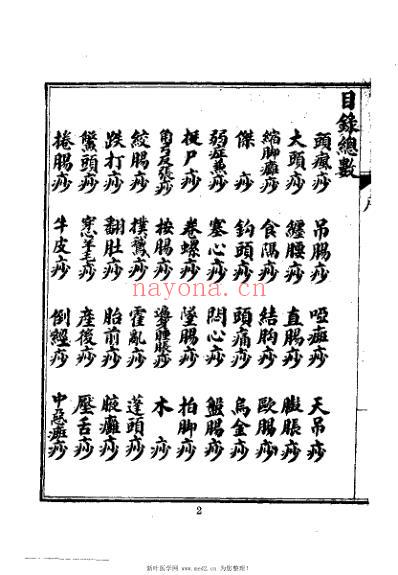 目錄總數
頭瘋痧 吊腸痧 啞痧 天吊痧
大頭痧 纏腰痧 直腸痧 膨脹痧
縮脚癱痧 食隔痧 結胸痧 歐腸痧
傑痧 鈎頭痧 頭痛痧 烏金痧
弱症兼痧 塞心痧 悶心痧 盤腸痧
挺尸痧 卷螺痧 墜腸痧 拍脚痧
角弓反張痧 按腸痧 身腫脹痧 木痧
絞腸痧 撲鵝痧 霍亂痧 蓬頭痧
跌打痧 翻肚痧 胎前痧 腋癰痧
鱉頭痧 穿心羊毛痧 產後痧 壓舌痧
捲腸痧 牛皮痧 倒經痧 中惡痧
nayona.cn
2
新叶医学网 www.med2.cn 为您整理!